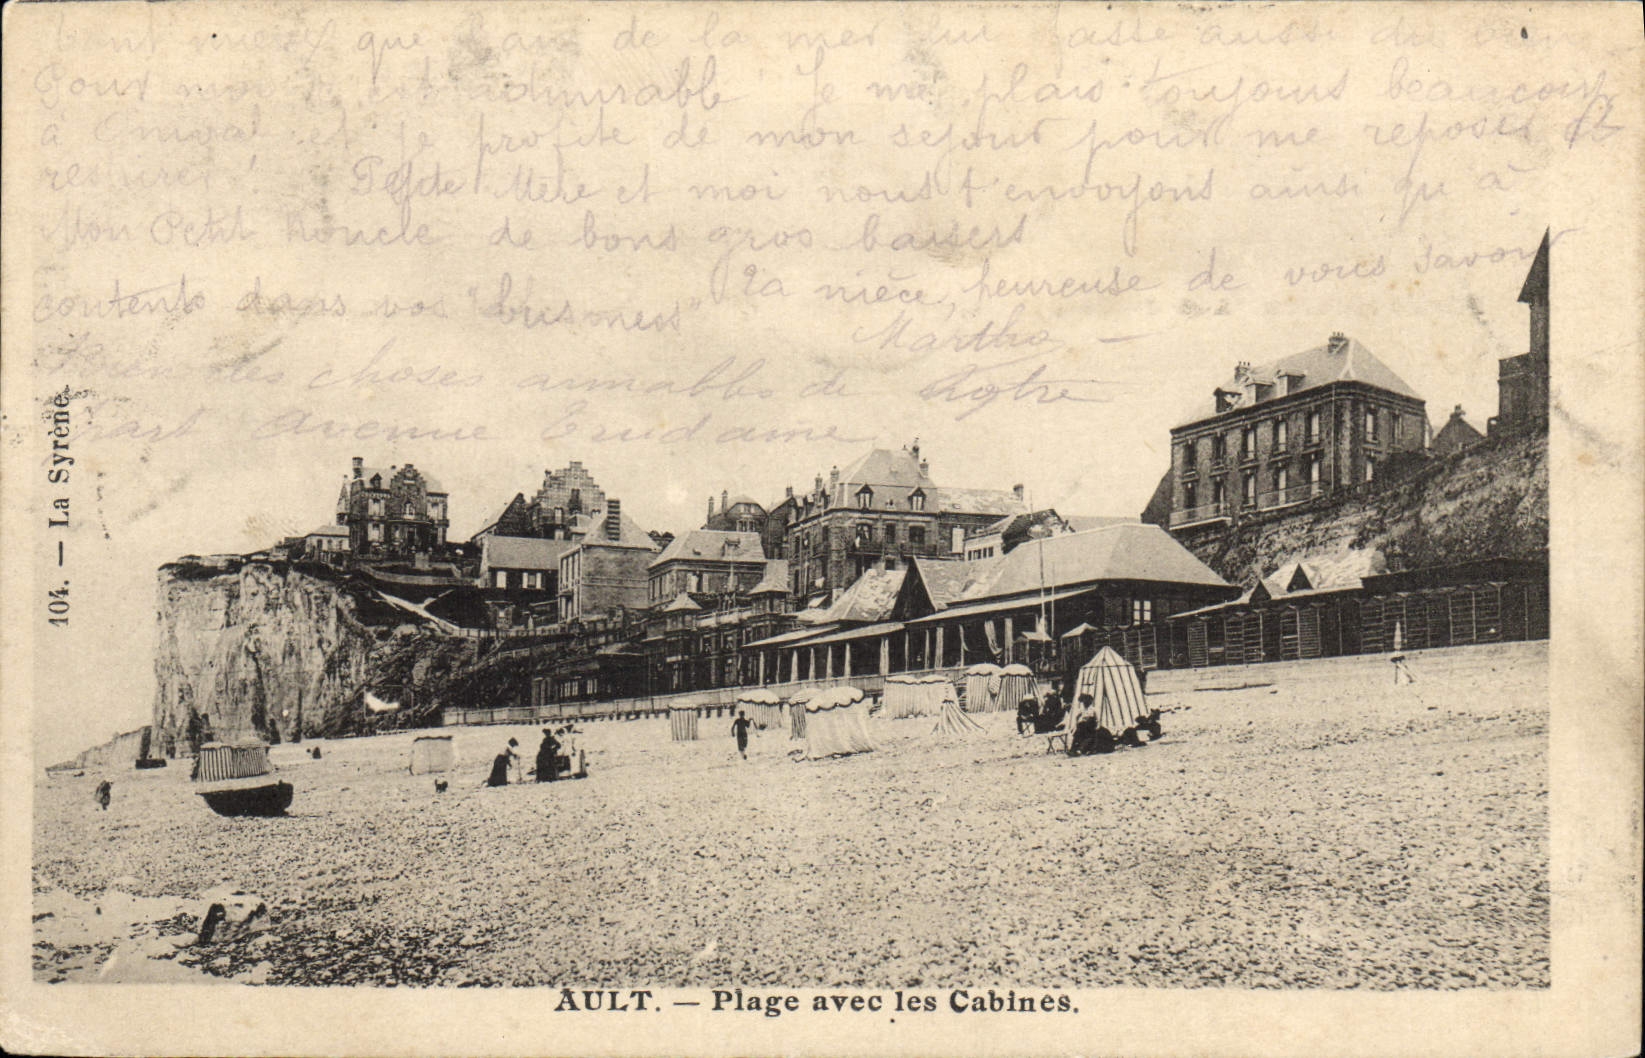 Tant mieux que l'air de la mer lui fasse aussi du bien
Pour moi il est admirable Je me plais toujours beaucoup
à Onival et je profite de mon sejour pour me reposer et
Petite Mère et moi nous t'envoyons ainsi qu'à
Mon Petit Noncle de bons gros baisers
Ta nièce, heureuse de vous savoir
contents dans vos "business"
Martha —
Bien des choses aimables de Notre
part Avenue Trudaine
104. — La Syrène.
AULT. — Plage avec les Cabines.